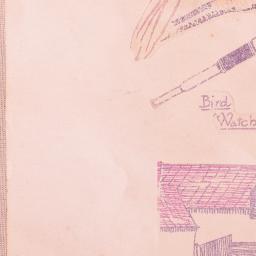 Bird
Watch